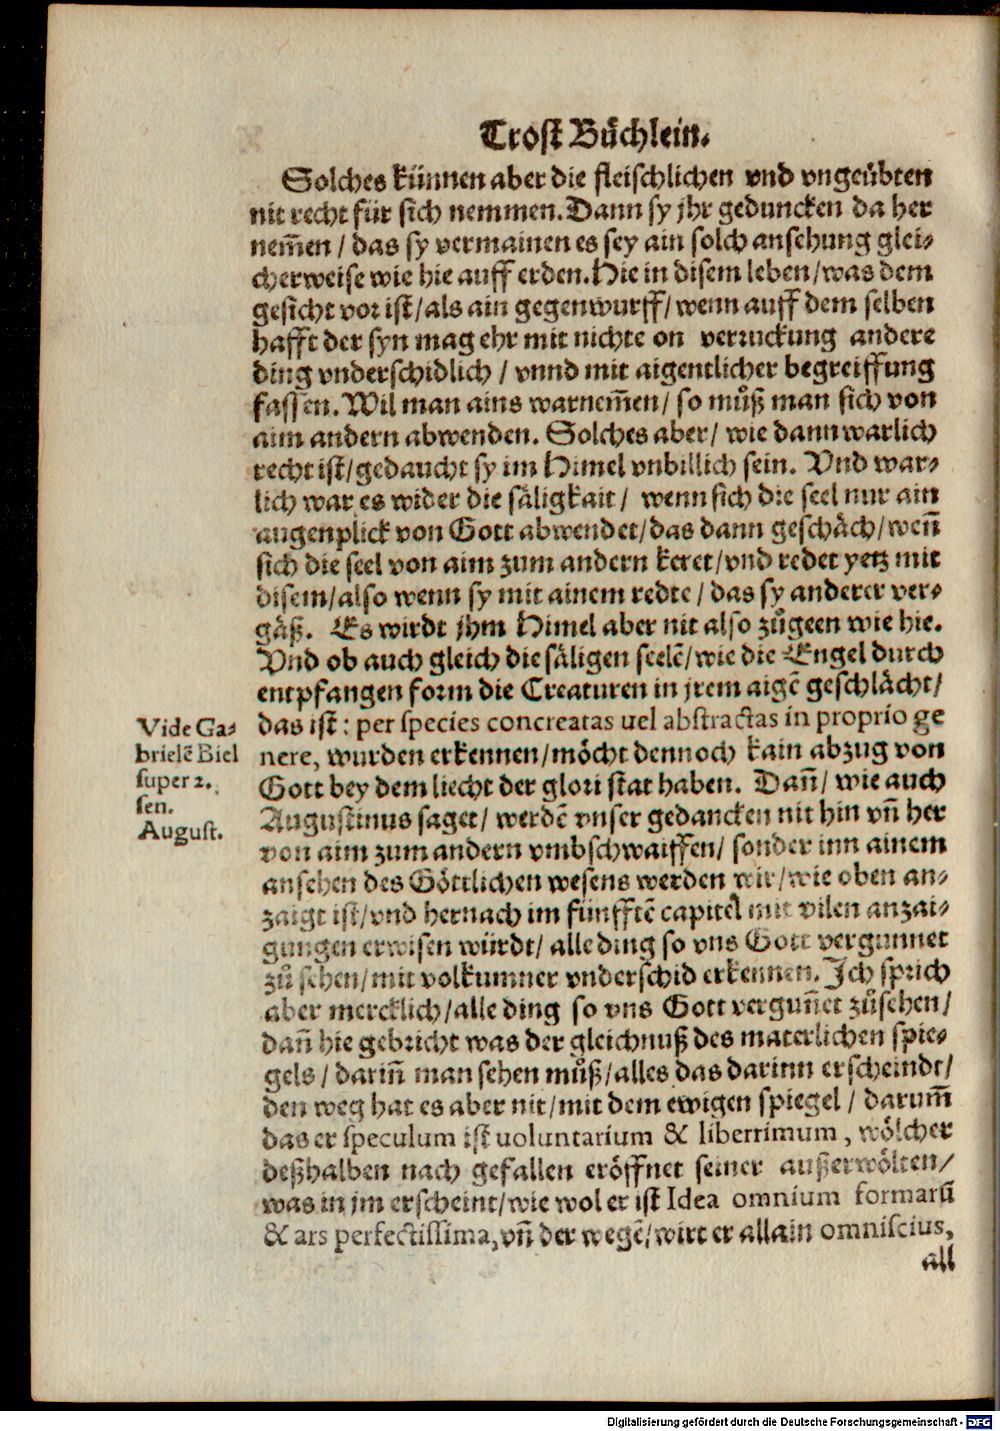 Trost Bůchlein.
Solches künnen aber die fleischlichen vnd vngeübten
nit recht für sich nemmen. Dann sy jhr geduncken da her
nem̃en / das sy vermainen es sey ain solch ansehung glei⸗
cherweise wie hie auff erden. Hie in disem leben / was dem
gesicht vor ist / als ain gegenwurff / wenn auff dem selben
hafft der syn mag ehr mit nichte on verruckung andere
ding vnderschidlich / vnnd mit aigentlicher begreiffung
fassen. Wil man ains warnem̃en / so můß man sich von
aim andern abwenden. Solches aber / wie dann warlich
recht ist / gedaucht sy im Himel vnbillich sein. Vnd war⸗
lich war es wider die säligkait / wenn sich die seel nur ain
augenplick von Gott abwendet / das dann geschäch / wen̄
sich die seel von aim zum andern keret / vnd redet yetz mit
disem / also wenn sy mit ainem redte / das sy anderer ver⸗
gäß. Es wirdt jhm Himel aber nit also zůgeen wie hie.
Vnd ob auch gleich die säligen seelē / wie die Engel durch
entpfangen form die Creaturen in jrem aigē geschlächt /
das ist : per species concreatas uel abstractas in proprio ge
nere, wurden erkennen / möcht dennoch kain abzug von
Gott bey dem liecht der glori stat haben. Dan̄ / wie auch
Augustinus saget / werdē vnser gedancken nit hin vn̄ her
von aim zum andern vmbschwaiffen / sonder inn ainem
ansehen des Göttlichen wesens werden wir / wie oben an⸗
zaigt ist / vnd hernach im fünfftē capitel mit vilen anzai⸗
gungen erwisen würdt / alle ding so vns Gott vergunnet
zů sehen / mit volkumner vnderschid erkennen. Ich sprich
aber mercklich / alle ding so vns Gott vergun̄et zůsehen /
dan̄ hie gebricht was der gleichnuß des materlichen spie⸗
gels / darin̄ man sehen můß / alles das darinn erscheindt /
den weg hat es aber nit / mit dem ewigen spiegel / darum̄
das er speculum ist uoluntarium & liberrimum, wölcher
deßhalben nach gefallen eröffnet seiner außerwölten /
was in jm erscheint / wie wol er ist Idea omnium formarū
& ars perfectissima, vn̄ der wegē / wirt er allain omniscius,
all
Vide Ga⸗
brielē Biel
super 2.
sen.
August.
Digitalisierung gefördert durch die Deutsche Forschungsgemeinschaft - DFG